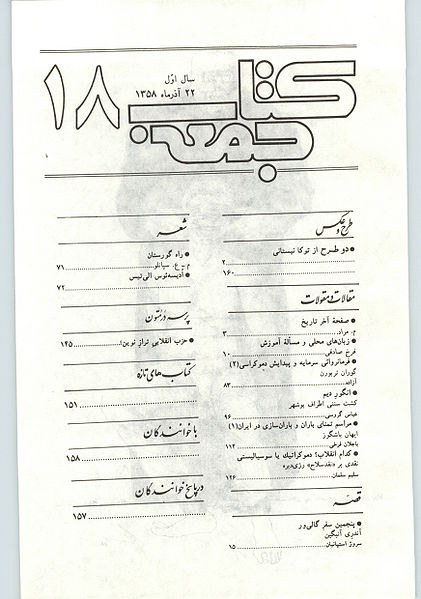 کتاب جمعه
۱۸
سال اوّل
۲۲ آذرماه ۱۳۵۸
طرح و عکس
● دو طرح از توکا نیستانی
۲
۱۶۰
مقالات و مقولات
● صفحهٔ آخر تاریخ
م. مراد
۳
● زبان‌های محلی و مسألهٔ آموزش
فرخ صادقی
۱۰
● فرمانروائی سرمایه و پیدایش دموکراسی (۲)
گوران تربورن
آزاده
۸۳
● انگور دیم
کشت سنتی اطراف بوشهر
عباس گروسی
۹۶
● مراسم تمنای باران و باران‌سازی در ایران (۱)
ایهان باشگوز
باجلان فرخی
۱۱۲
● کدام انقلاب؛ دموکراتیك یا سوسیالیستی
نقدی بر «نقدسلاح» رژی‌دبره
سلیم سلمان
۱۲۶
قصه
● پنجمین سفر گالی‌ور
آندری آنیگین
سروژ استپانیان
۱۵
شعر
● راه گورستان
م. ع. سپانلو
۷۱
● آدیسه‌ئوس الی‌تیس
۷۲
پرسه در متون
● حزب انقلابی تراز نوین:
۱۲۵
کتاب‌های تازه
۱۵۱
با خوانندگان
۱۵۸
در پاسخ خوانندگان
۱۵۷